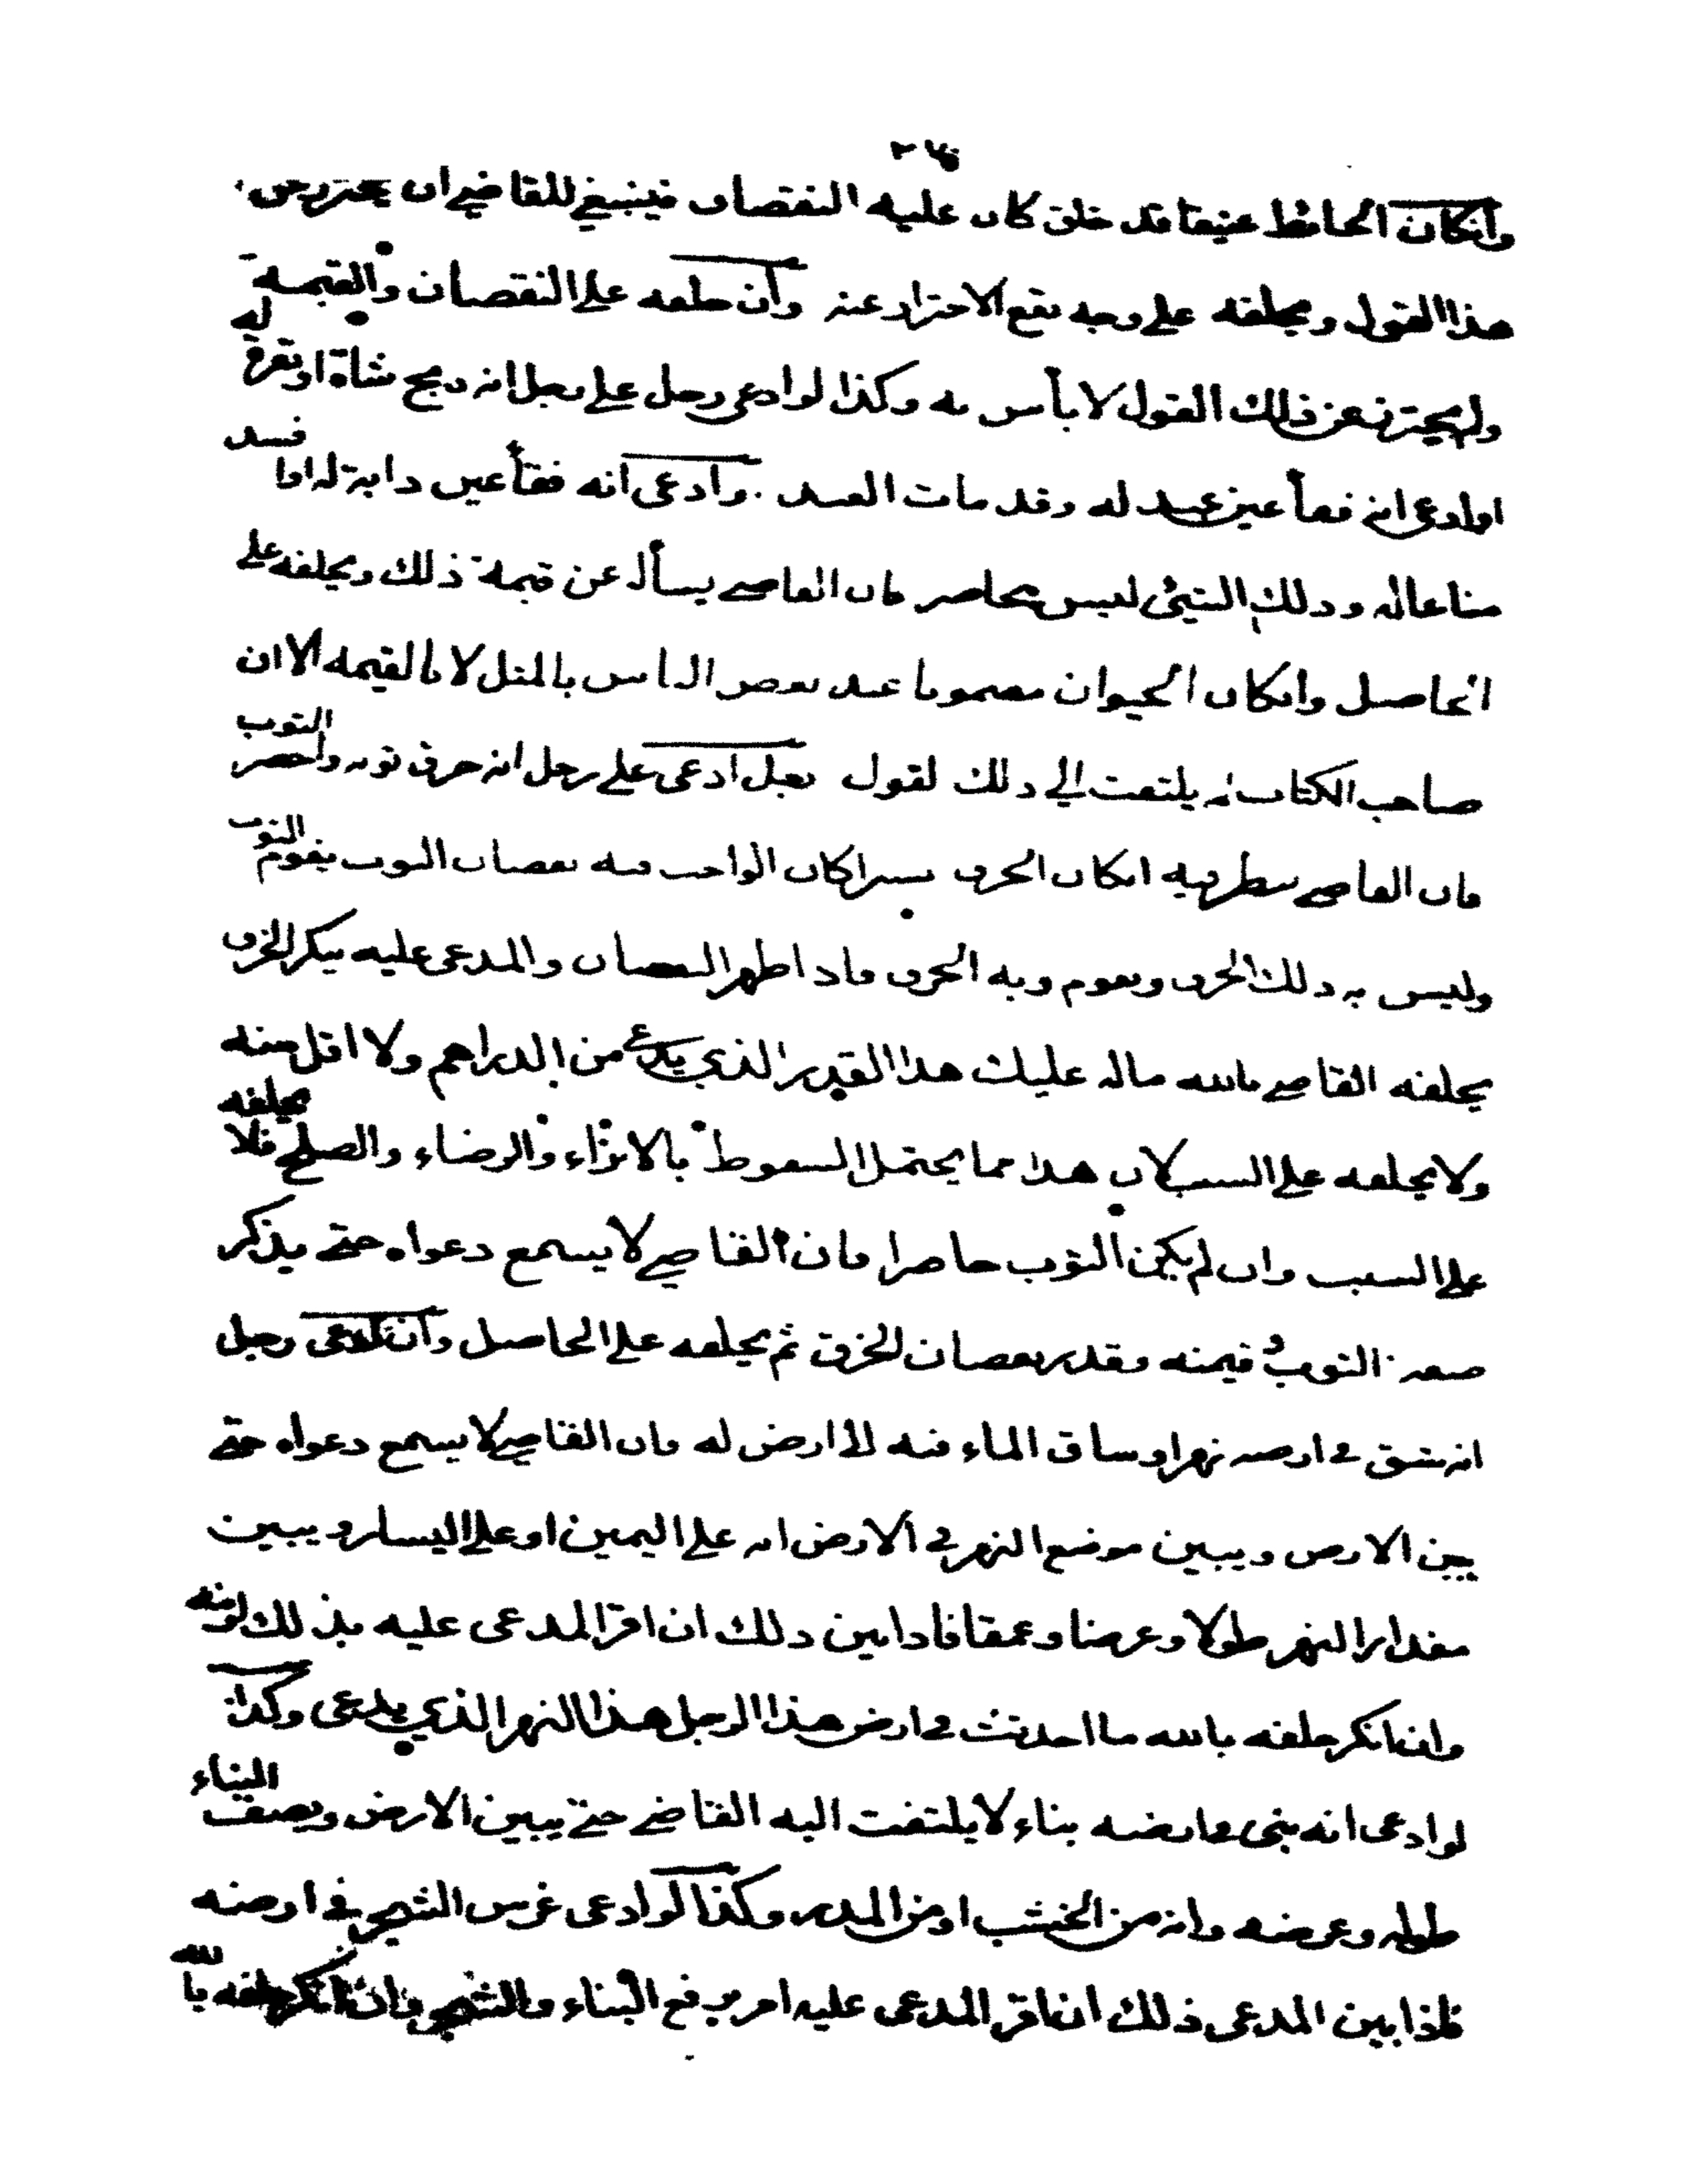 وان كان الحائط عتيقا قد خلق كان عليه النقصان فينبغي للقاضي ان يحترز عن
هذا القول ويحلفه على وجه يقع الاحتراز عنه وان حلفه على النقصان والقيمة
ولم يحترز عن ذلك القول لا بأس به وكذا لو ادعى رجل على رجل انه ذبح شاة او بقرة له
او ادعى انه فقأ عين عبد له وقد مات العبد وادعى انه فقأ عين دابة له او افسد
متاعا له وذلك الشيئ ليس بحاضر فان القاضي يسأله عن قيمة ذلك ويحلفه على
الحاصل وان كان الحيوان مضمونا عند بعض الناس بالمثل لا بالقيمه الا ان
صاحب الكتاب لم يلتفت الى ذلك لقول رجل ادعى على رجل انه خرق ثوبه واحضر الثوب
فان القاضي ينظر فيه ان كان الخرق يسيرا كان الواجب فيه نقصان الثوب يقوم الثوب
وليس به ذلك الخرق ويقوم وبه الخرق فاذا ظهر النقصان والمدعى عليه ينكر الخرق
يحلفه القاضي بالله ماله عليك هذا القدر الذي يدعي من الدراهم ولا اقل منه
ولا يحلفه على السبب لان هذا مما يحتمل السقوط بالابراء والرضاء والصلح فلا يحلفه
على السبب وان لم يكن الثوب حاضرا فان القاضي لا يسمع دعواه حتى يذكر
صفة الثوب و قيمته وقدر نقصان الخرق ثم يحلفه على الحاصل وان ادعى رجل
انه شق في ارضه نهرا وساق الماء فيه الى ارض له فان القاضي لا يسمع دعواه حتى
يبين الارض ويبين موضع النهر في الارض انه على اليمين او على اليسار ويبين
مقدار النهر طولا وعرضا وعمقا فاذا بين ذلك ان اقر المدعى عليه بذلك لزمه
وان انكر حلفه بالله ما احدثت في ارض هذا الرجل هذا النهر الذي يدعى وكذا
لو ادعى انه بنى في ارضه بناء لا يلتفت اليه القاضي حتى يبين الارض ويصف البناء
طوله وعرضه وانه من الخشب او من المدر وكذا لو ادعى غرس الشجر في ارضه
فاذا بين المدعى ذلك ان اقر المدعى عليه امر برفع البناء والشجر وان انكر حلفه بالله